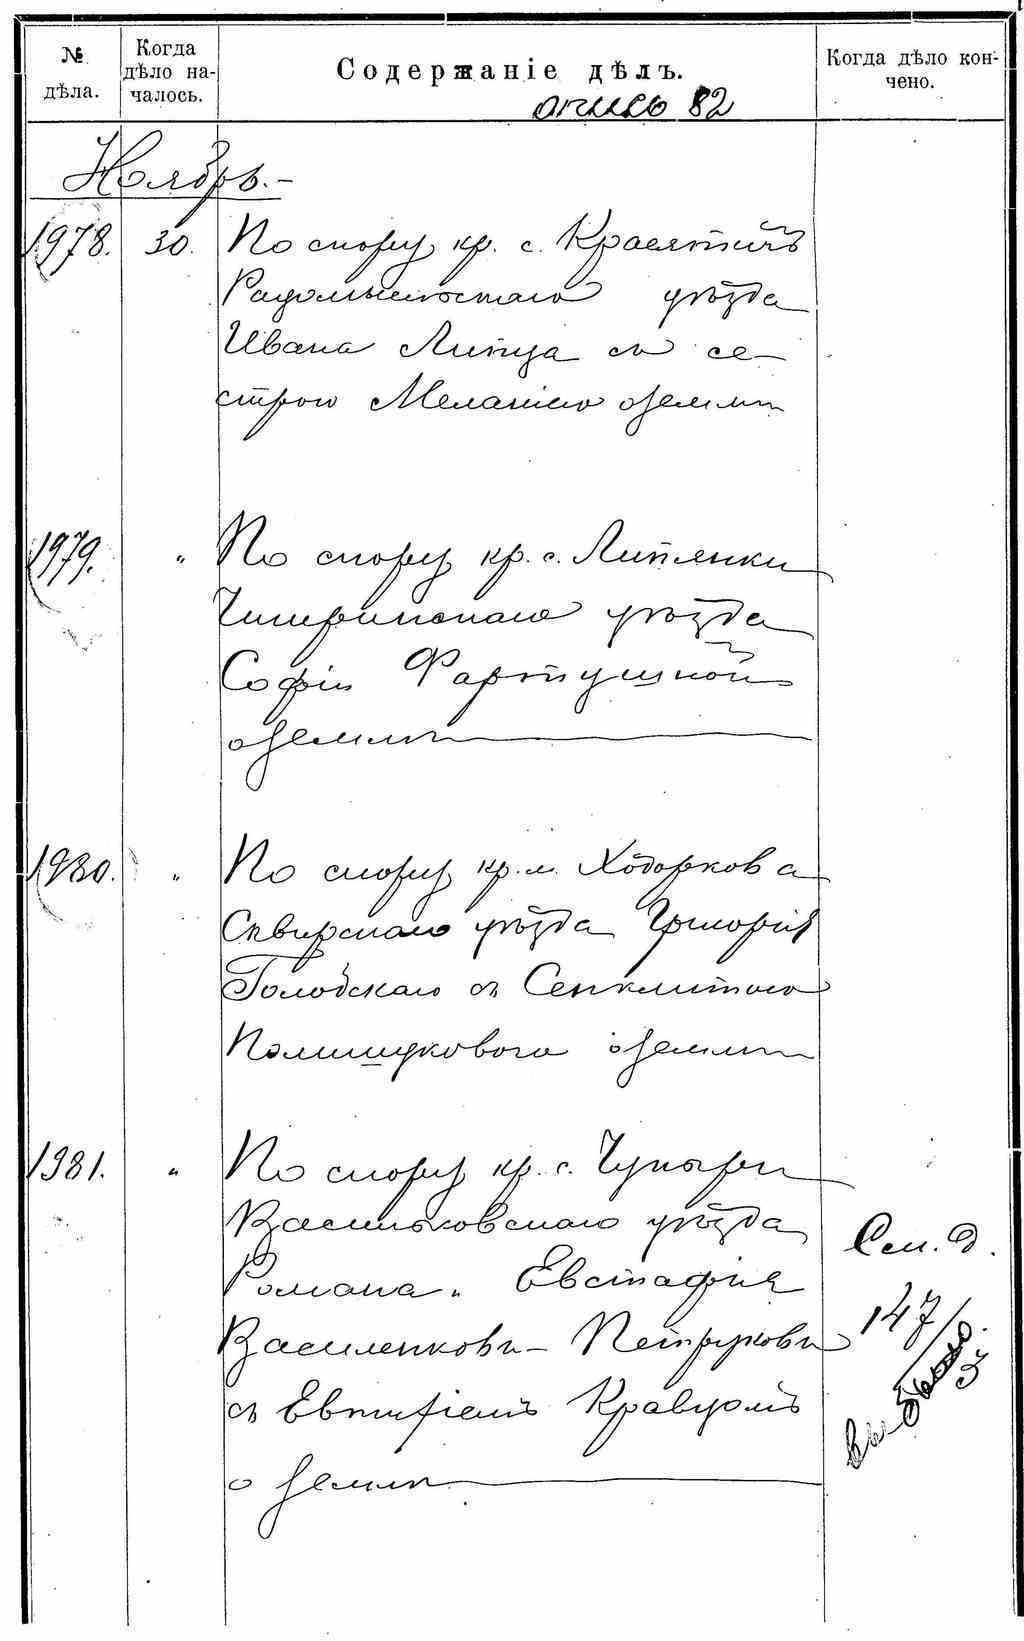 № дѣла.
Когда дѣло началось.
Содержаніе дѣлъ.
Когда дѣло кончено.
опись 82
Ноябрь.-
1978. 30. По спору кр. с. Красятичъ
Радомысльскаго уѣзда
Ивана Литца съ се-
строю Меланіею о землѣ
1979. " По спору кр. с. Липянки
Чигиринскаго уѣзда
Софіи Фартушной
о землѣ
1980. " По спору кр. м. Ходоркова
Сквирскаго уѣзда Григорія
Голобскаго съ
о землѣ
1981. " По спору кр. с. Чупыри
Васильковскаго уѣзда
Романа " Евстафія
Василенковъ - Петруковъ
съ Евтихіемъ Кравцомъ
о землѣ
См. д.
147